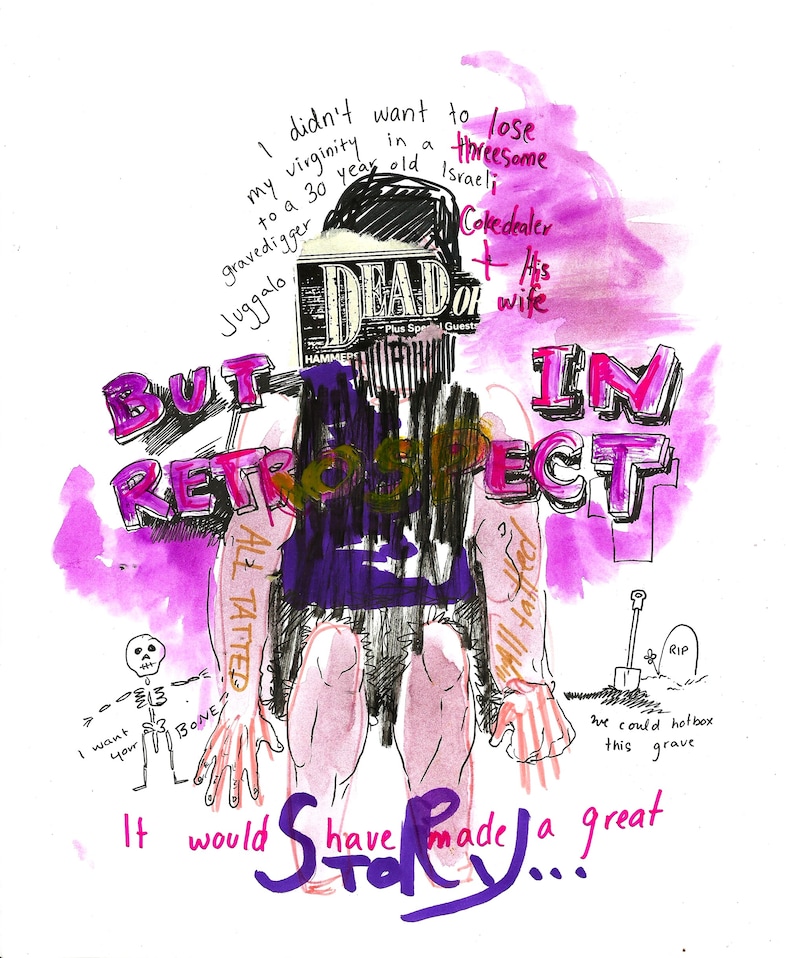 I didn't want to lose
my virginity in a threesome
to a 30 year old Israeli
gravedigger Cokedealer
Juggalo + His
wife
DEAD OR
Plus Special Guests
HAMMERS
BUT IN
RETROSPECT
ALL TATTED
All tatted
I want your BONE
RIP
we could hotbox
this grave
It would have made a great
STORY...